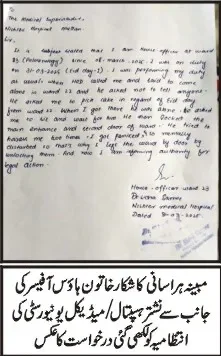 The Medical Superintendent,
Nishtar Hospital Multan
Sir,
It is subject stated that I am house officer at ward
23 (Pulmonology) since of march-2025. I was on duty
on 31-03-2025 (Eid day-I). I was performing my duty
as usual when HED called me and said to come
alone in ward 22 and he asked not to tell anyone.
He asked me to pick cake in regard of Eid day
from ward 22. When I got there he was alone. He asked
me to sit and wait for two He then locked the
main entrance and second door of ward. He tried to
harass me two times. I got panicked, so mentally
disturbed so that's why I left the ward by door by
unlocking them. And now I am informing authority for
legal action.
House-officer ward 23
Nishtar medical Hospital
Dated
مبینہ ہراسانی کا شکار خاتون ہاؤس آفیسر کی
جانب سے نشتر ہسپتال/میڈیکل یونیورسٹی کی
انتظامیہ کو لکھی گئی درخواست کا عکس